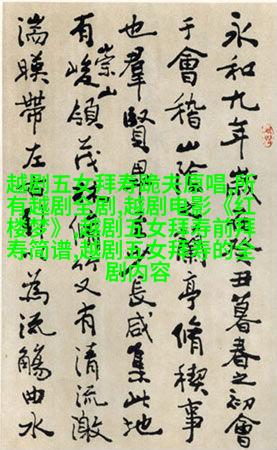 永和九年歲丑暮春之初會
于會稽山陰蘭亭脩稧事
也羣賢畢長咸集此地
有崇山峻領茂竹又有清流激
湍暎帶左為流觴曲水
越剧五女拜寿跪夫原唱,所
有越剧全剧,越剧电影《红
楼梦》,越剧五女拜寿前拜
寿简谱,越剧五女拜寿的全
剧内容